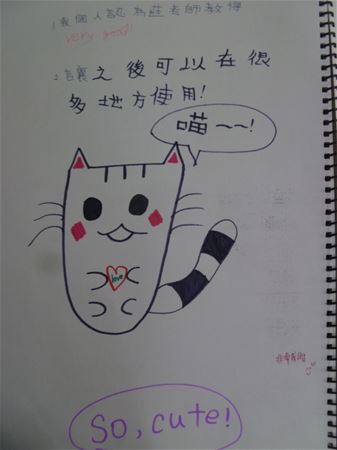 1.我個人認為莊老師教得
very good!
2.言裏之後可以在很
多地方使用!
喵~~!
love
So, cute!